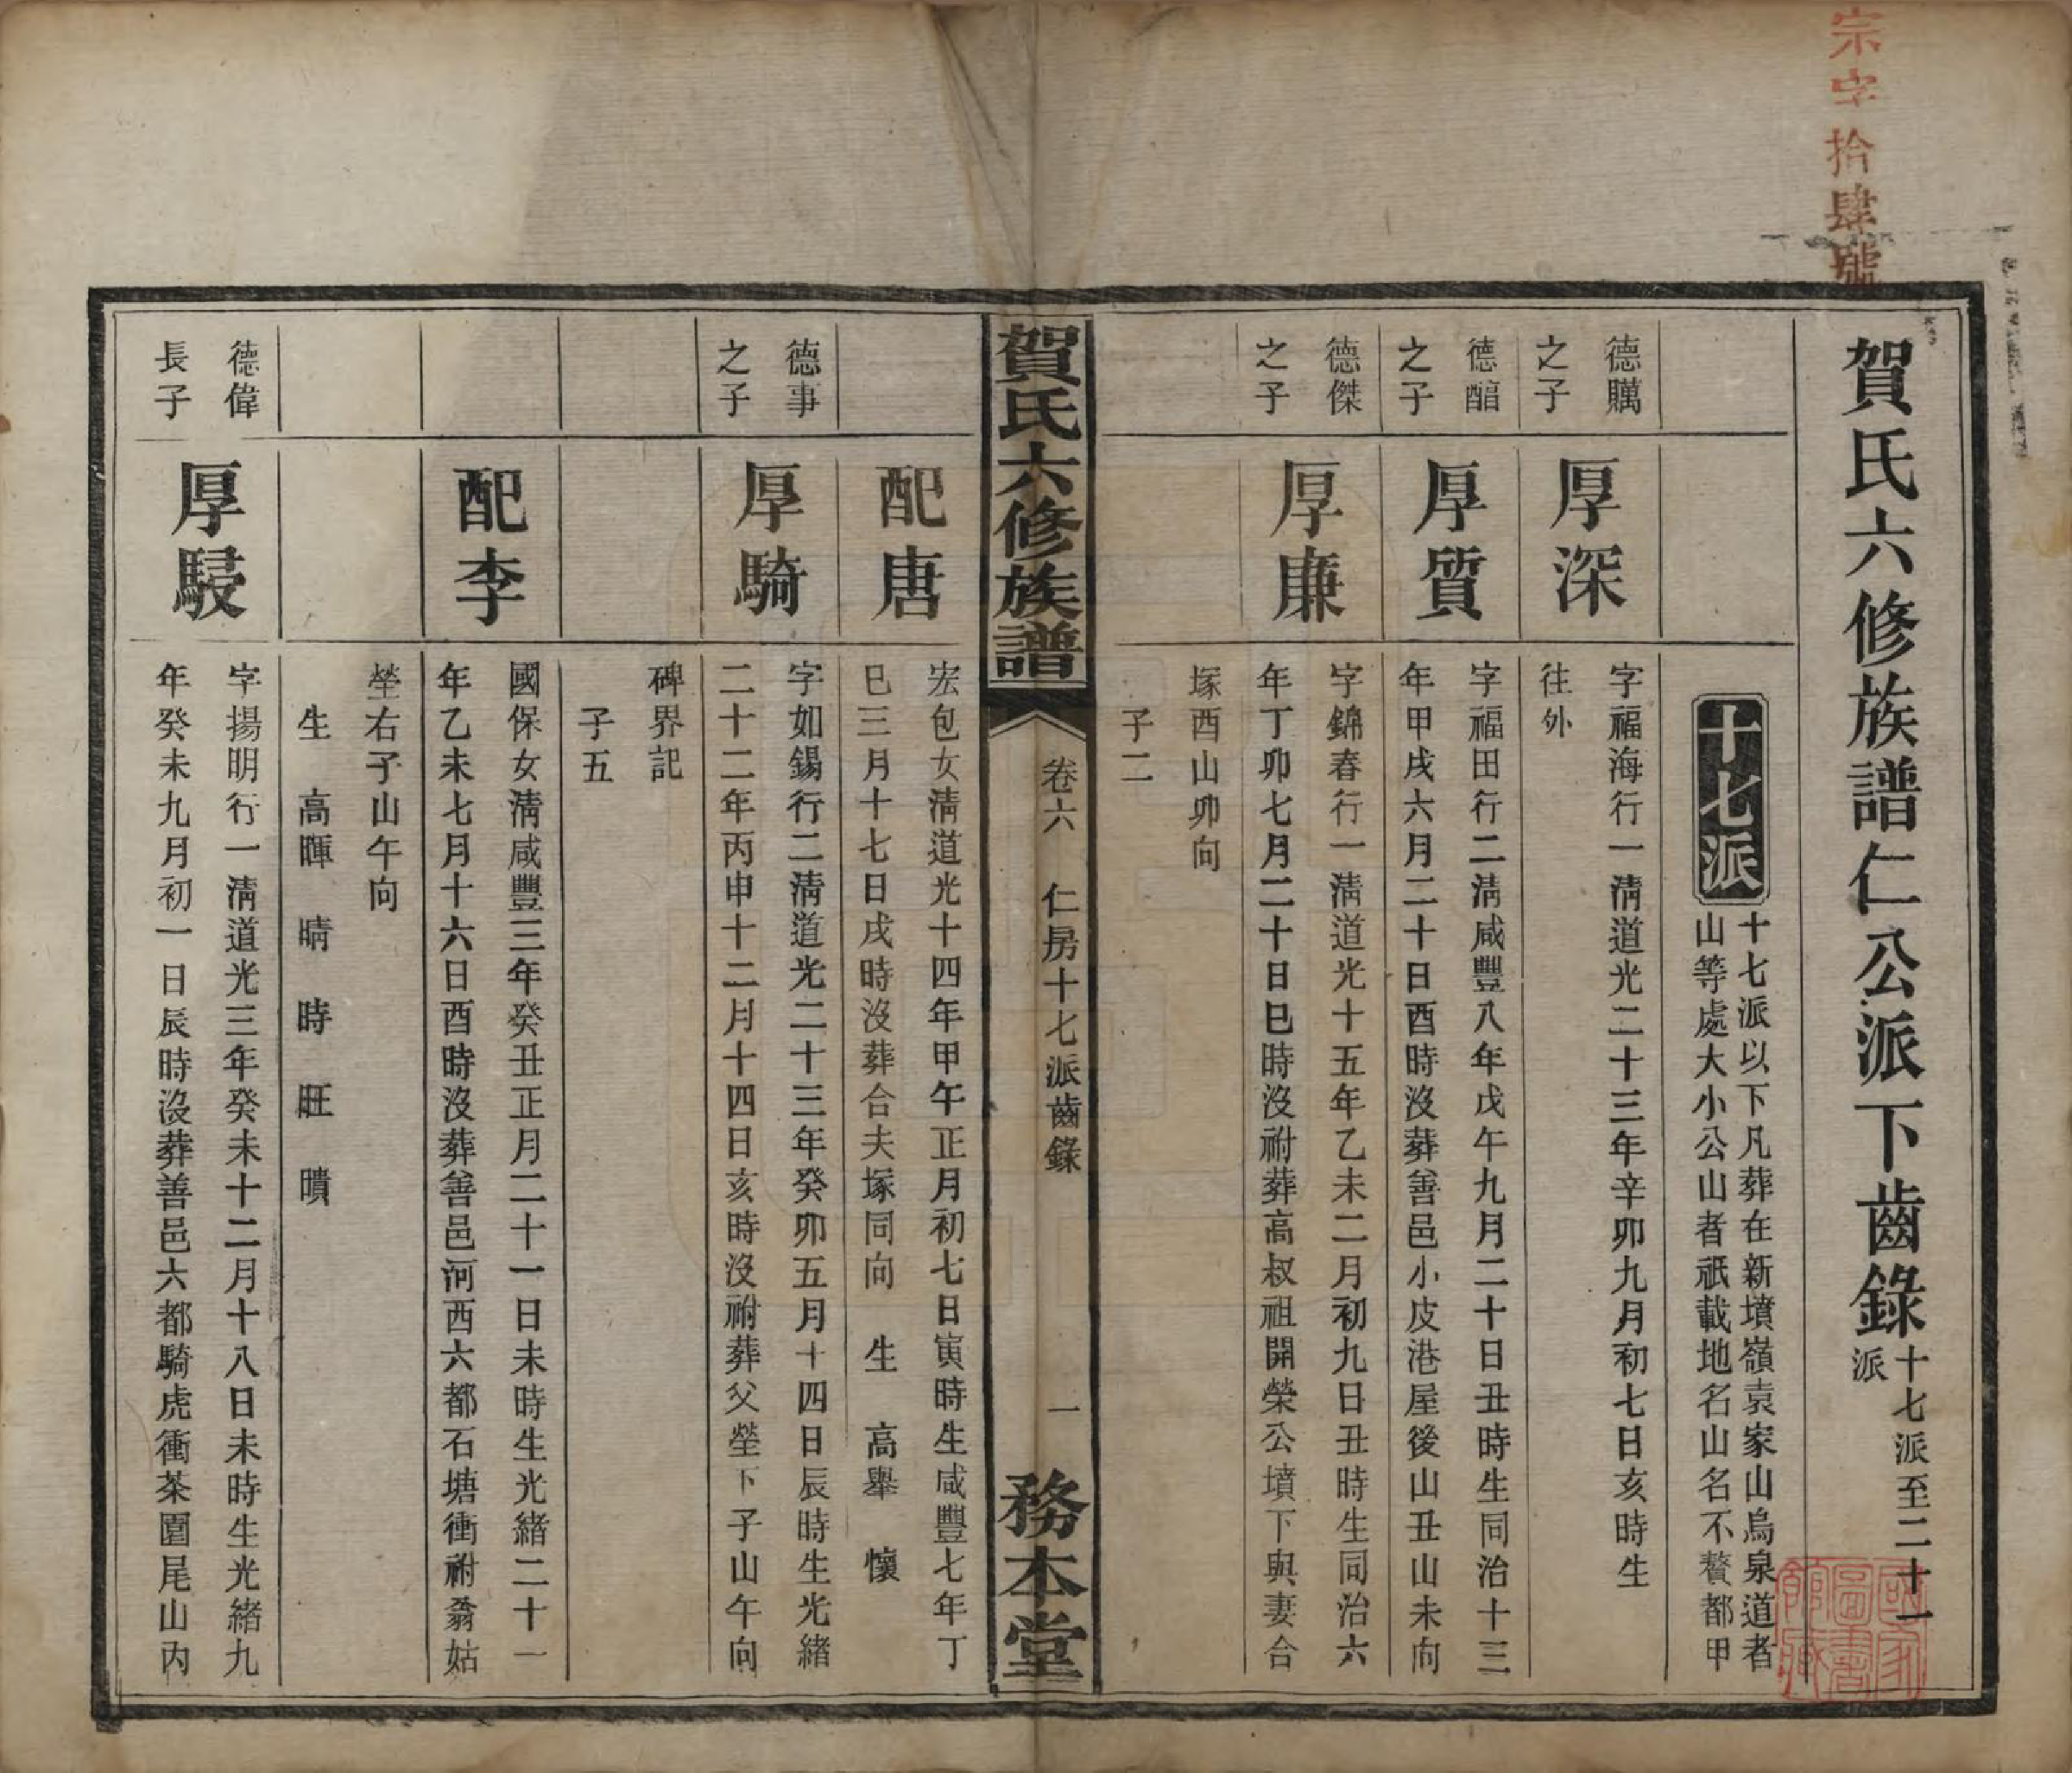 宗字拾肆號
賀氏六修族譜仁公派下齒錄
十七派至二十一
派
十七派
十七派以下凡葬在新墳嶺袁家山烏泉道者
山等處大小公山者祇載地名山名不贅都甲
德
之子
厚深
字福海行一清道光二十三年辛卯九月初七日亥時生
往外
德
之子
厚質
字福田行二清咸豐八年戊午九月二十日丑時生同治十三
年甲戌六月二十日酉時沒葬善邑小皮港屋後山丑山未向
德傑
之子
厚廉
字錦春行一清道光十五年乙未二月初九日丑時生同治六
年丁卯七月二十日巳時沒祔葬高叔祖開榮公墳下與妻合
塚酉山卯向
子二
賀氏六修族譜
卷六
仁房十七派齒錄
一
務本堂
配唐
宏包女清道光十四年甲午正月初七日寅時生咸豐七年丁
巳三月十七日戌時沒葬合夫塚同向 生 高舉 懷
德事
之子
厚騎
字如錫行二清道光二十三年癸卯五月十四日辰時生光緒
二十二年丙申十二月十四日亥時沒祔葬父塋下子山午向
碑界記
子五
配李
國保女清咸豐三年癸丑正月二十一日未時生光緒二十一
年乙未七月十六日酉時沒葬善邑河西六都石塘衝祔翁姑
塋右子山午向
生 高暉 晴 時 旺 曊
德偉
長子
厚駸
字揚明行一清道光三年癸未十二月十八日未時生光緒九
年癸未九月初一日辰時沒葬善邑六都騎虎衝茶園尾山內
國家圖書館藏